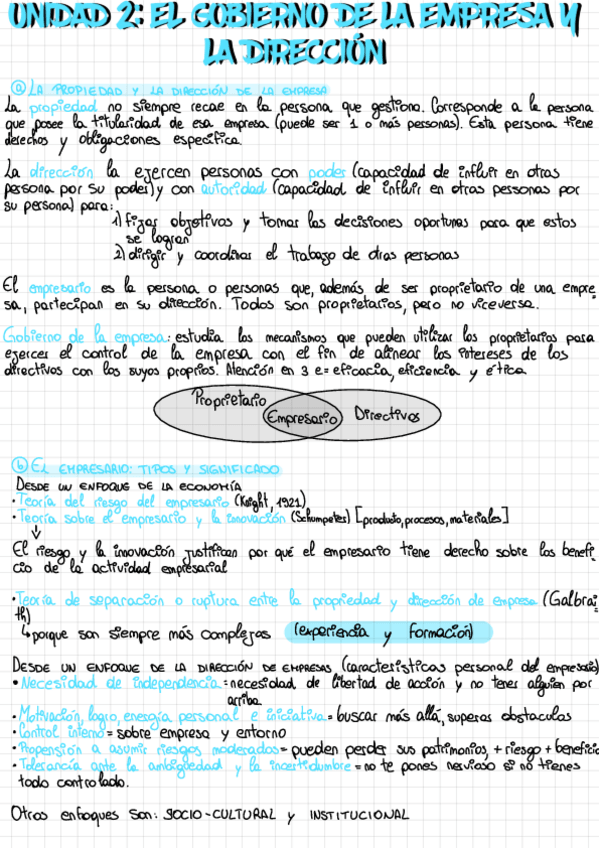 UNIDAD 2: EL GOBIERNO DE LA EMPRESA Y
LA DIRECCIÓN
a) LA PROPIEDAD Y LA DIRECCIÓN DE LA EMPRESA
La propiedad no siempre recae en la persona que gestiona. Corresponde a la persona
que posee la titularidad de esa empresa (puede ser 1 o más personas). Esta persona tiene
derechos y obligaciones específica.
La dirección la ejercen personas con poder (capacidad de influir en otras
persona por su poder) y con autoridad (capacidad de influir en otras personas por
su persona) para:
1) fijar objetivos y tomar las decisiones oportunas para que estos
se logran
2) dirigir y coordinar el trabajo de otras personas
El empresario es la persona o personas que, además de ser proprietario de una empre
sa, partecipan en su dirección. Todos son proprietarios, pero no viceversa.
Gobierno de la empresa: estudia los mecanismos que pueden utilizar los proprietarios para
ejercer el control de la empresa con el fin de alinear los intereses de los
directivos con los suyos proprios. Atención en 3 e = eficacia, eficiencia y ética
Proprietario Empresario Directivos
b) EL EMPRESARIO: TIPOS Y SIGNIFICADO
DESDE UN ENFOQUE DE LA ECONOMÍA
• Teoría del riesgo del empresario (Knight, 1921)
• Teoría sobre el empresario y la innovación (Schumpeter) [producto, procesos, materiales]
↓
El riesgo y la innovación justifican por qué el empresario tiene derecho sobre los benefi
cio de la actividad empresarial
• Teoría de separación o ruptura entre la propriedad y dirección de empresa (Galbrai
th)
↳ porque son siempre más complejas (experiencia y formación)
DESDE UN ENFOQUE DE LA DIRECCIÓN DE EMPRESAS (características personal del empresario)
• Necesidad de independencia = necesidad de libertad de acción y no tener alguien por
arriba
• Motivación, logro, energía personal e iniciativa = buscar más allá, superar obstaculos
• Control interno = sobre empresa y entorno
• Propensión a asumir riesgos moderados = pueden perder sus patrimonios, + riesgo + beneficio
• Tolerancia ante la ambigüedad y la incertidumbre = no te pones nervioso si no tienes
todo controlado.
Otros enfoques son: SOCIO-CULTURAL y INSTITUCIONAL